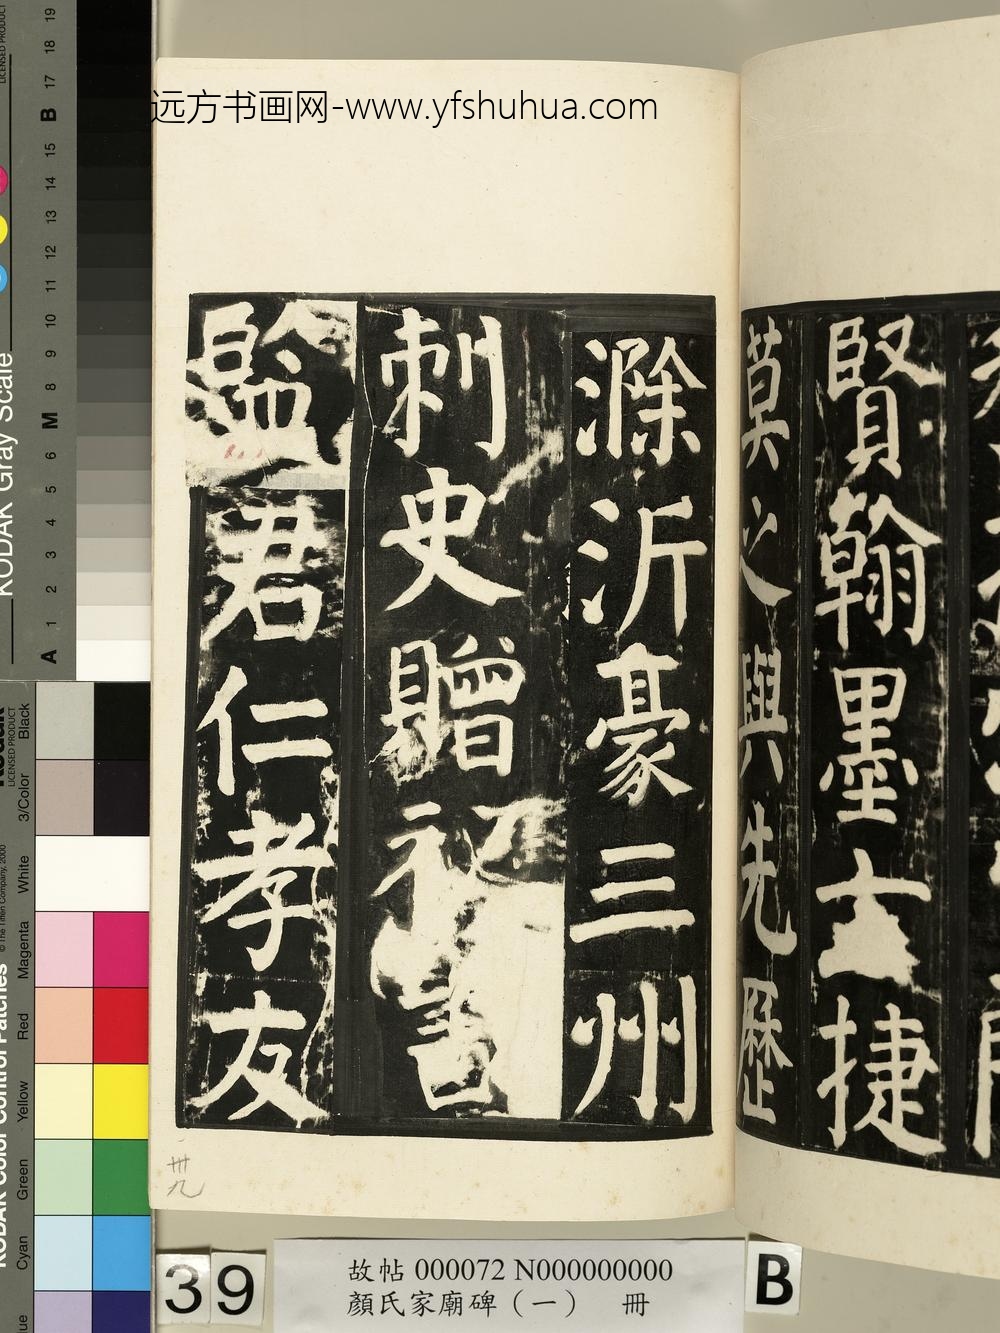 远方书画网-www.yfshuhua.com
賢翰墨亠捷
莫之與先歷
滁沂豪三州
刺史贈祕書
監君仁孝友
卅九
39
故帖 000072 N000000000
顏氏家廟碑（一） 冊
B
KODAK Gray Scale
A 1 2 3 4 5 6 M 8 9 10 11 12 13 14 15 B 17 18 19
LICENSED PRODUCT
KODAK Color Control Patches
© The Tiffen Company, 2000
LICENSED PRODUCT
Cyan Green Yellow Red Magenta White 3/Color Black